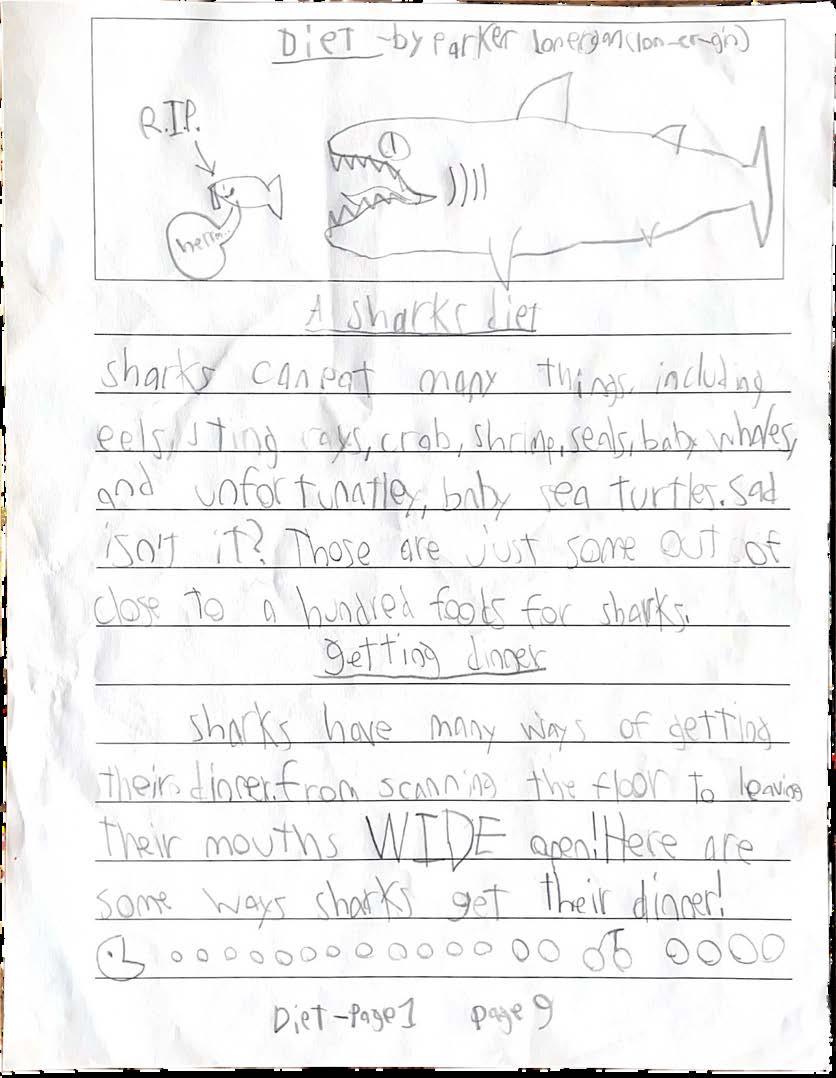 Diet -by Parker lonergan (lon-er-gin)
R.I.P.
hello...
A sharks diet
sharks can eat many things, including
eels, sting rays, crab, shrimp, seals, baby whales,
and unfortunatley, baby sea turtles. Sad
isn't it? Those are just some out of
close to a hundred foods for sharks.
getting dinner
sharks have many ways of getting
their dinner. from scanning the floor to leaving
their mouths WIDE open! Here are
some ways sharks get their dinner!
Diet-Page 1 page 9